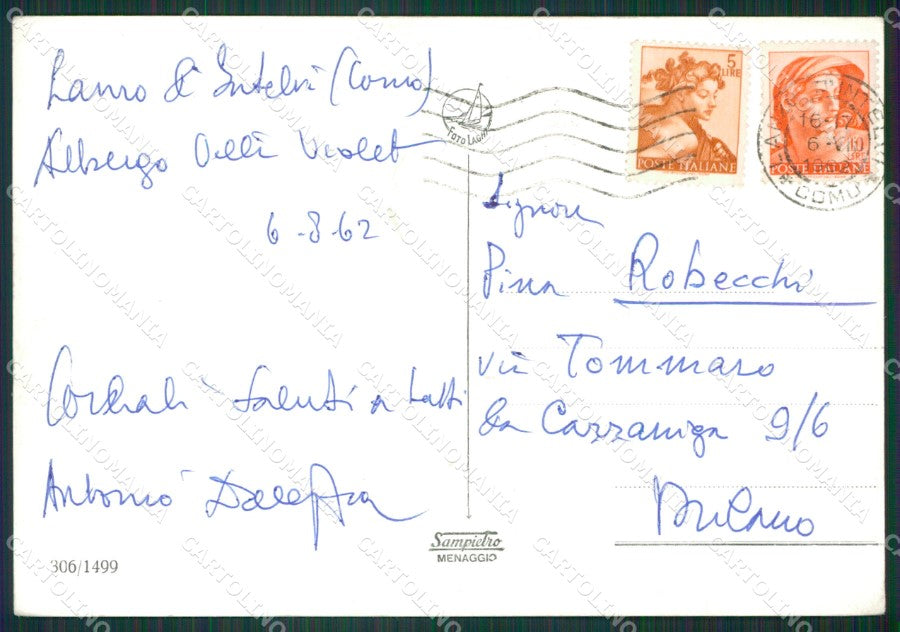 Lanzo d'Intelvi (Como)
Albergo Villi Violet
6-8-62
Cordiali saluti a tutti
Antonio
306/1499
FOTO
5
LIRE
POSTE ITALIANE
POSTE ITALIANE
INTELVI
16-
6-VIII
19
COMO
Signora
Pina Robecchi
via Tommaso
da Cazzaniga 9/6
Milano
Sampietro
MENAGGIO
CARTOLINOMANIA